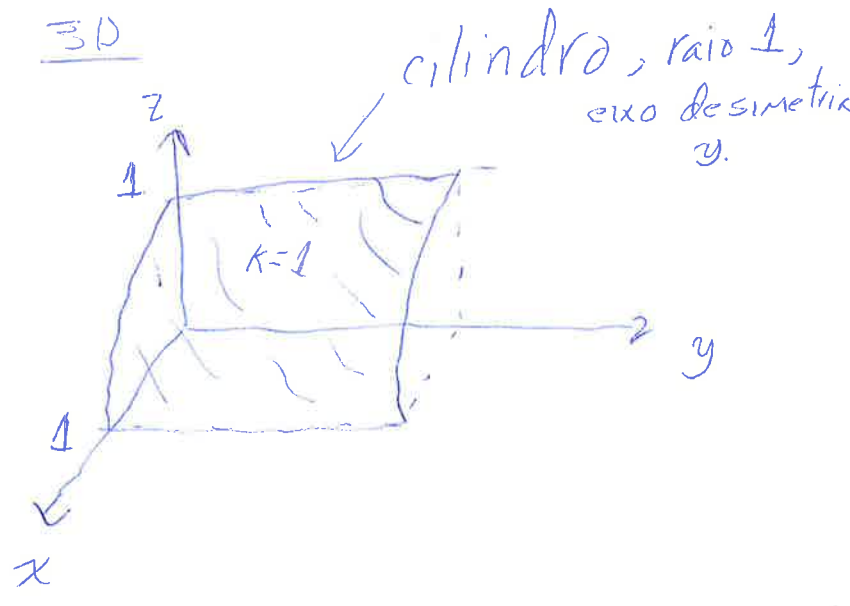 3D
cilindro, raio 1,
eixo de simetria
y.
z
1
K=1
y
1
x